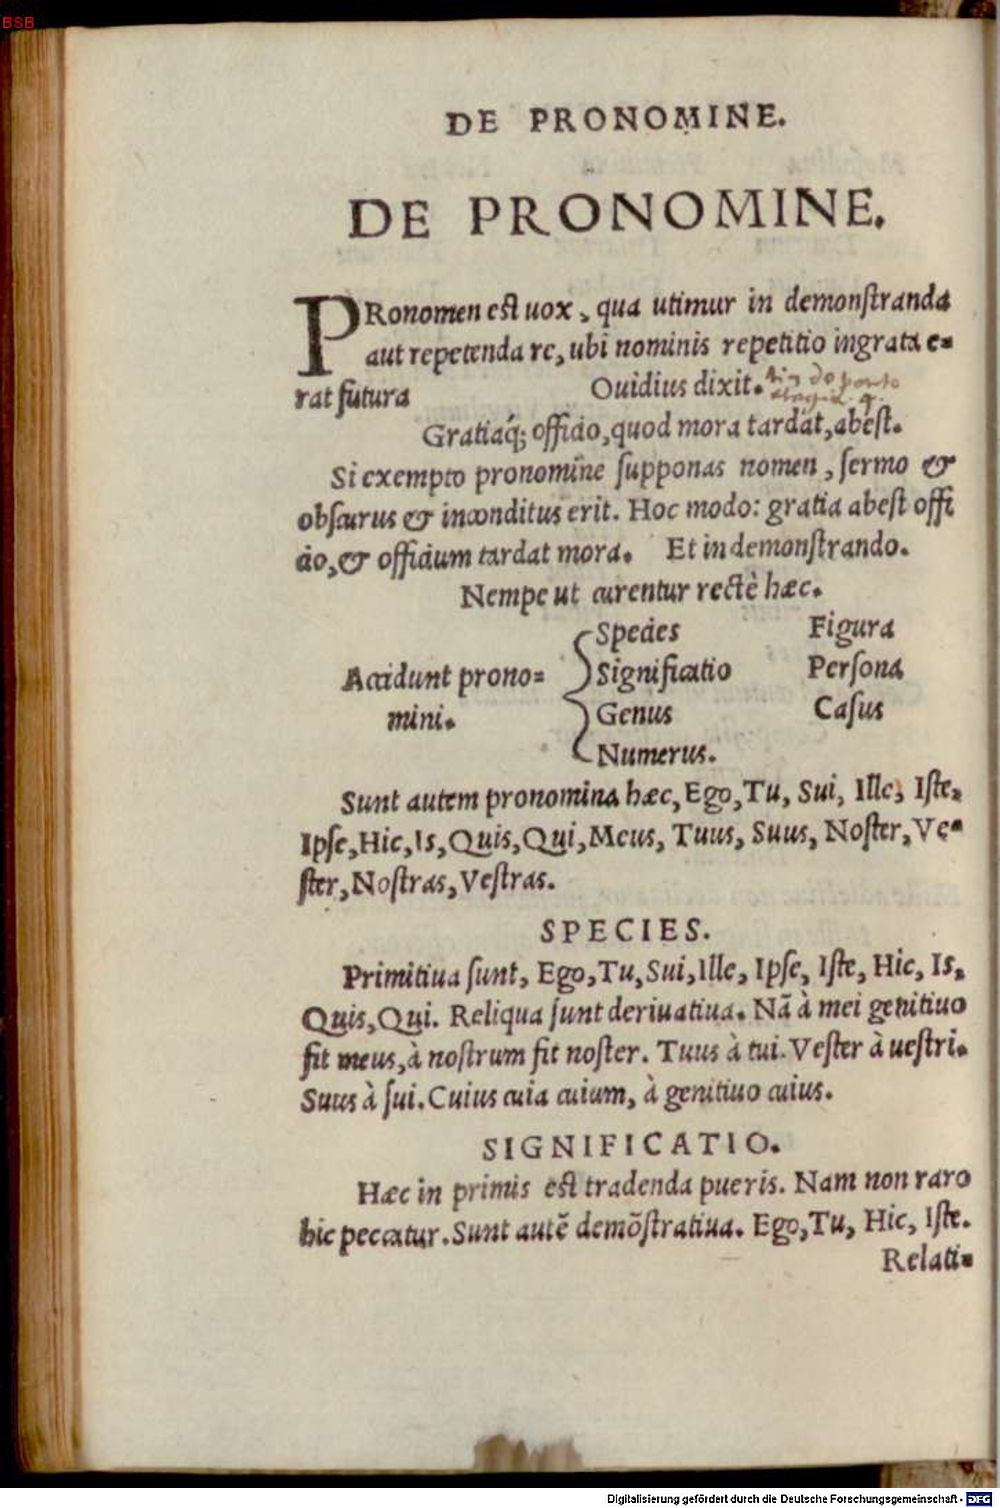 BSB
DE PRONOMINE.
DE PRONOMINE.
PRonomen est uox, qua utimur in demonſtranda
aut repetenda re, ubi nominis repetitio ingrata e=
rat futura Ouidius dixit. de ponto
Gratiaq́; officio, quod mora tardat, abeſt.
Si exempto pronomine ſupponas nomen, ſermo &
obſcurus & inconditus erit. Hoc modo: gratia abeſt offi
cio, & officium tardat mora. Et in demonſtrando.
Nempe ut curentur rectè hæc.
Species Figura
Accidunt prono= Significatio Perſona
mini. Genus Caſus
Numerus.
Sunt autem pronomina hæc, Ego, Tu, Sui, Ille, Iſte,
Ipſe, Hic, Is, Quis, Qui, Meus, Tuus, Suus, Noſter, Ve=
ſter, Noſtras, Veſtras.
SPECIES.
Primitiua ſunt, Ego, Tu, Sui, Ille, Ipſe, Iſte, Hic, Is,
Quis, Qui. Reliqua ſunt deriuatiua. Nã à mei genitiuo
fit meus, à noſtrum fit noſter. Tuus à tui. Veſter à ueſtri.
Suus à ſui. Cuius cuia cuium, à genitiuo cuius.
SIGNIFICATIO.
Hæc in primis est tradenda pueris. Nam non raro
hic peccatur. Sunt autẽ demõſtratiua. Ego, Tu, Hic, Iſte.
Relati=
Digitalisierung gefördert durch die Deutsche Forschungsgemeinschaft - DFG